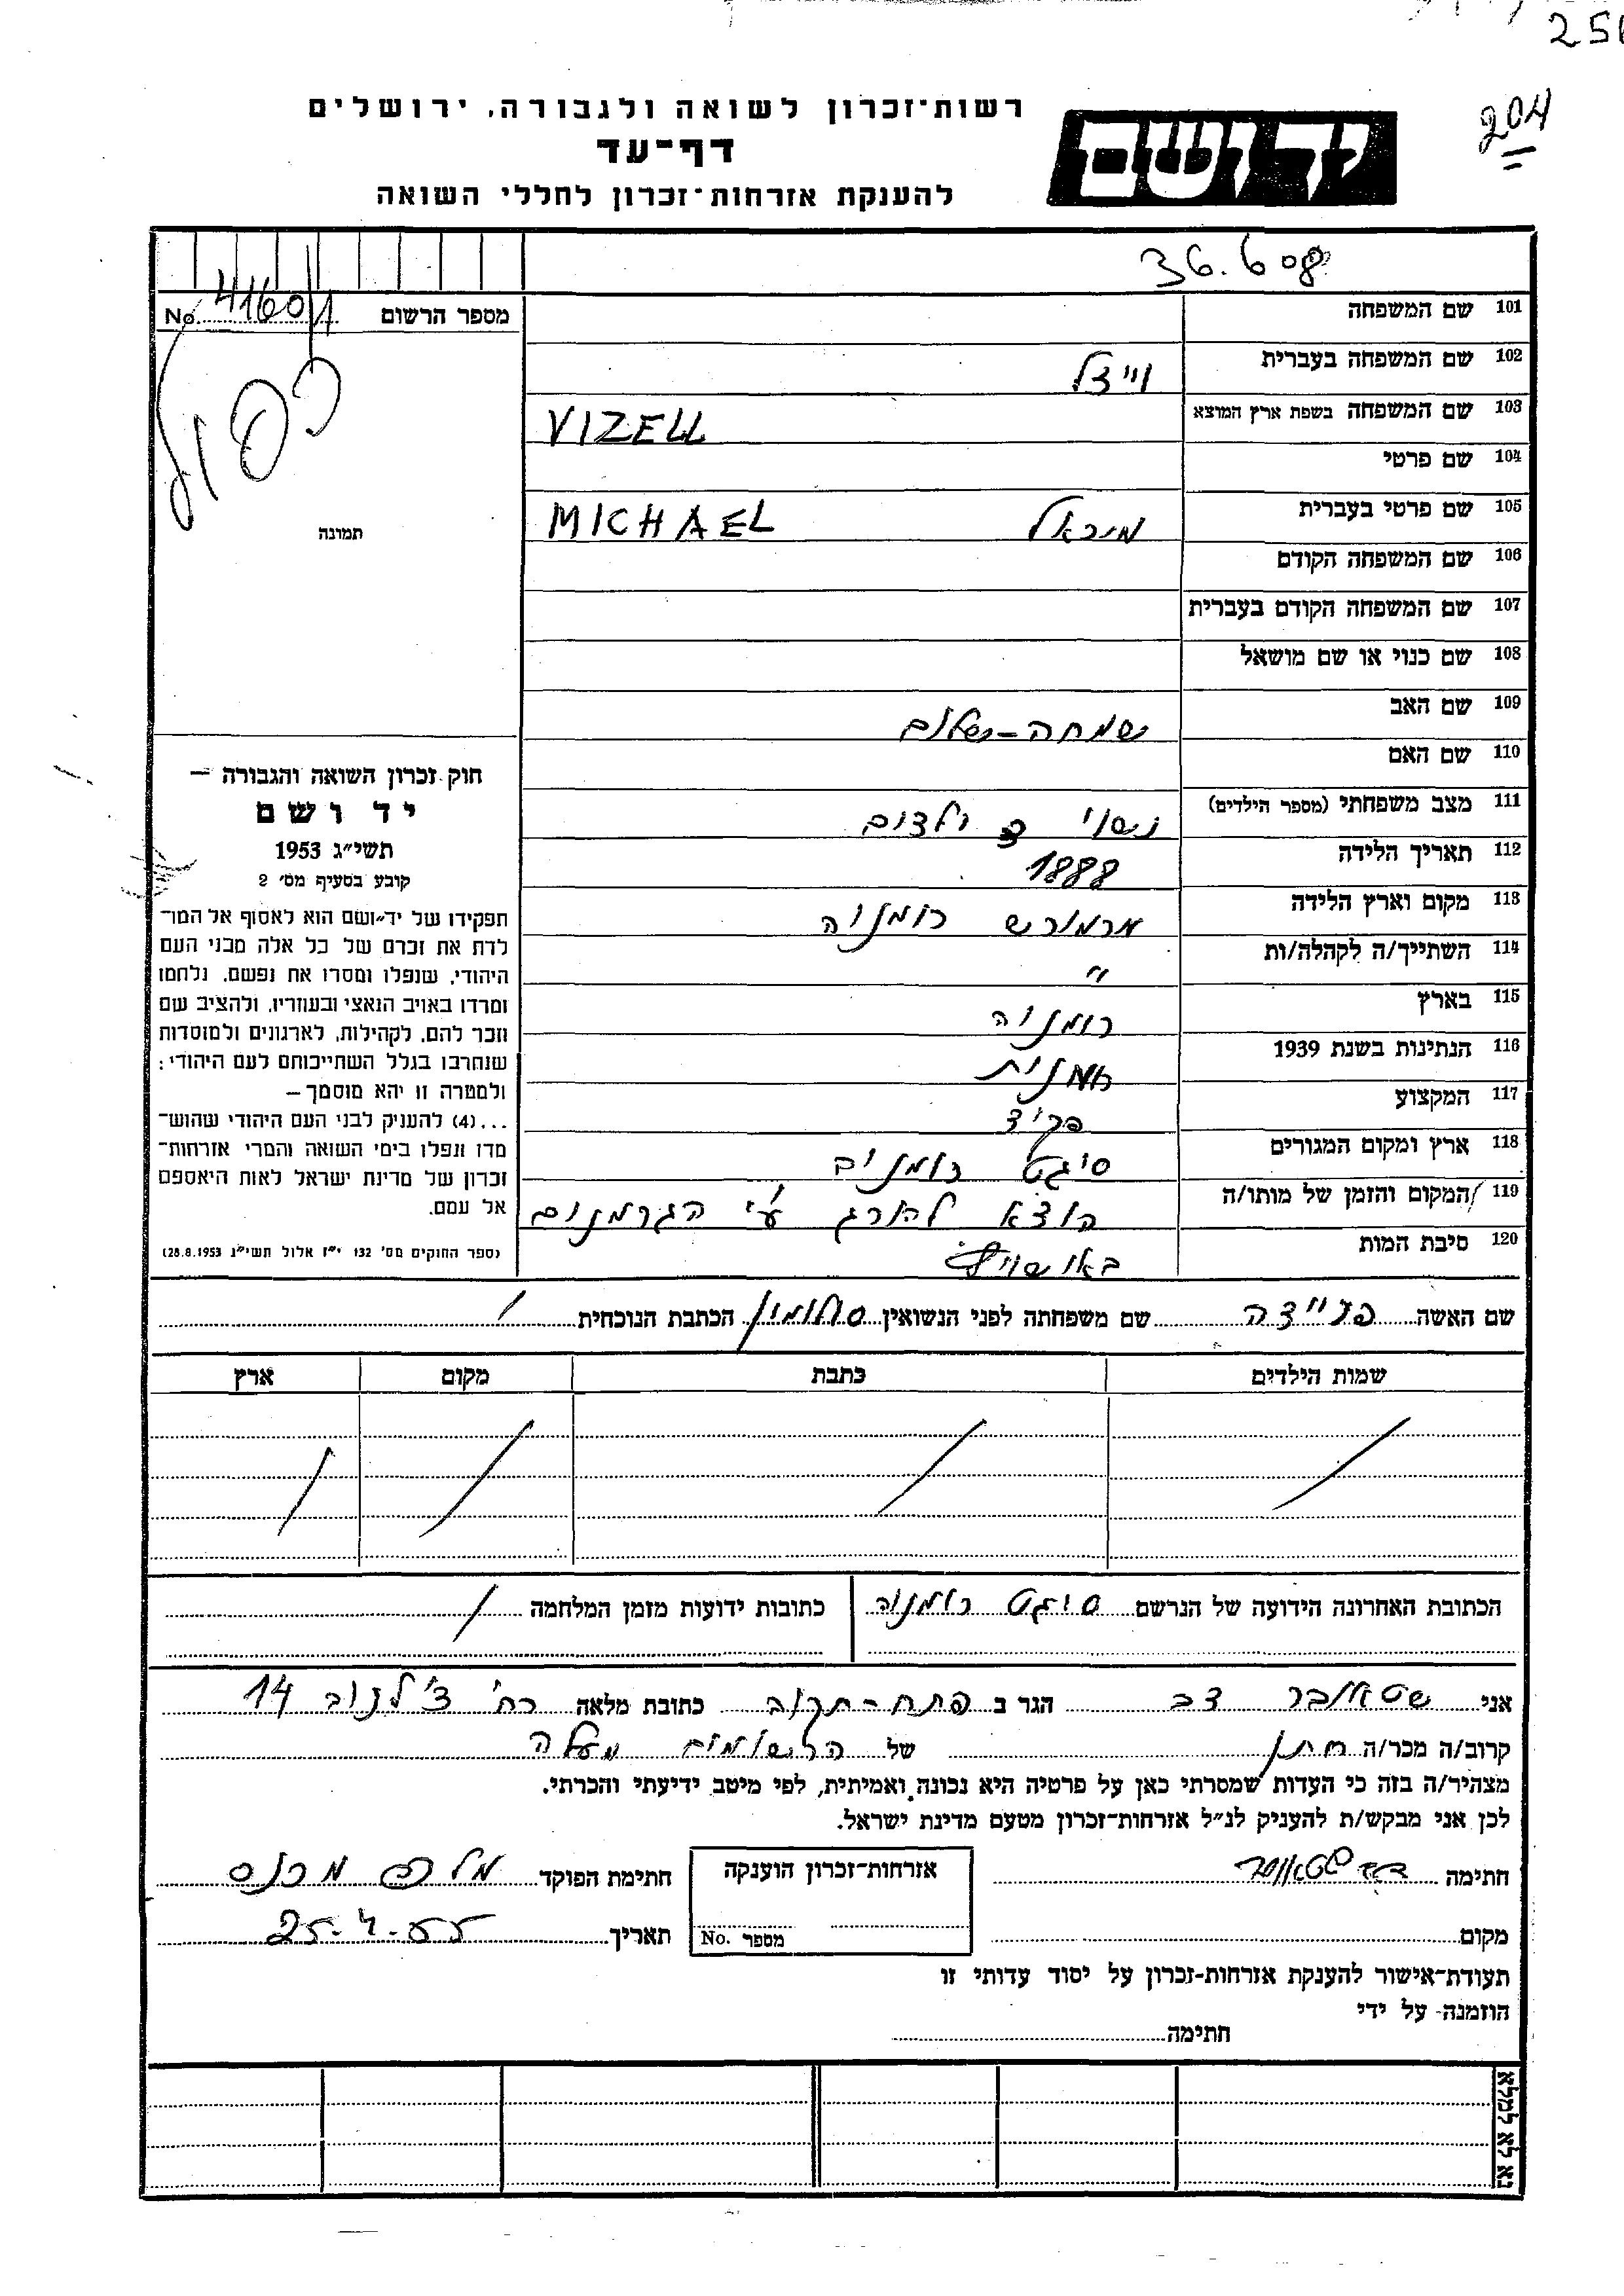 204
רשות־זכרון לשואה ולגבורה, ירושלים
יד ושם
דף־עד
להענקת אזרחות־זכרון לחללי השואה
36.608
מספר הרשום No. 4160/1
כפול
תמונה
101 שם המשפחה
102 שם המשפחה בעברית וייזל
103 שם המשפחה בשפת ארץ המוצא VIZELL
104 שם פרטי
105 שם פרטי בעברית מיכאל MICHAEL
106 שם המשפחה הקודם
107 שם המשפחה הקודם בעברית
108 שם כנוי או שם מושאל
109 שם האב שמחה-שלום
110 שם האם
111 מצב משפחתי (מספר הילדים) נשוי ילדים
112 תאריך הלידה 1888
113 מקום וארץ הלידה מרמורש רומניה
114 השתייך/ה לקהלה/ות "
115 בארץ רומניה
116 הנתינות בשנת 1939
117 המקצוע פקיד
118 ארץ ומקום המגורים סיגט רומניה
119 המקום והזמן של מותו/ה הוצא להורג ע"י הגרמנים
120 סיבת המות באושויץ
חוק זכרון השואה והגבורה —
יד ושם
תשי״ג 1953
קובע בסעיף מס׳ 2
תפקידו של יד־ושם הוא לאסוף אל המו־
לדת את זכרם של כל אלה מבני העם
היהודי, שנפלו ומסרו את נפשם, נלחמו
ומרדו באויב הנאצי ובעוזריו, ולהציב שם
וזכר להם, לקהילות, לארגונים ולמוסדות
שנחרבו בגלל השתייכותם לעם היהודי:
ולמטרה זו יהא מוסמך —
...(4) להעניק לבני העם היהודי שהוש־
מדו ונפלו בימי השואה והמרי אזרחות־
זכרון של מדינת ישראל לאות היאספם
אל עמם.
(ספר החוקים מס׳ 132 י״ז אלול תשי״ג 28.8.1953)
שם האשה פריידה שם משפחתה לפני הנשואין סולומון הכתבת הנוכחית /
שמות הילדים כתבת מקום ארץ
הכתובת האחרונה הידועה של הנרשם סיגט רומניה
כתובות ידועות מזמן המלחמה /
אני שטאובר דב הגר ב פתח-תקוה כתובת מלאה רח' צ'לנוב 14
קרוב/ה מכר/ה חתן של הרשומים מעלה
מצהיר/ה בזה כי העדות שמסרתי כאן על פרטיה היא נכונה ואמיתית, לפי מיטב ידיעתי והכרתי.
לכן אני מבקש/ת להעניק לנ״ל אזרחות־זכרון מטעם מדינת ישראל.
חתימה דב שטאובר
אזרחות־זכרון הוענקה
מספר No.
חתימת הפוקד
מקום
תאריך 25-4-55
תעודת־אישור להענקת אזרחות־זכרון על יסוד עדותי זו
הוזמנה על ידי
חתימה
נא לא למלא